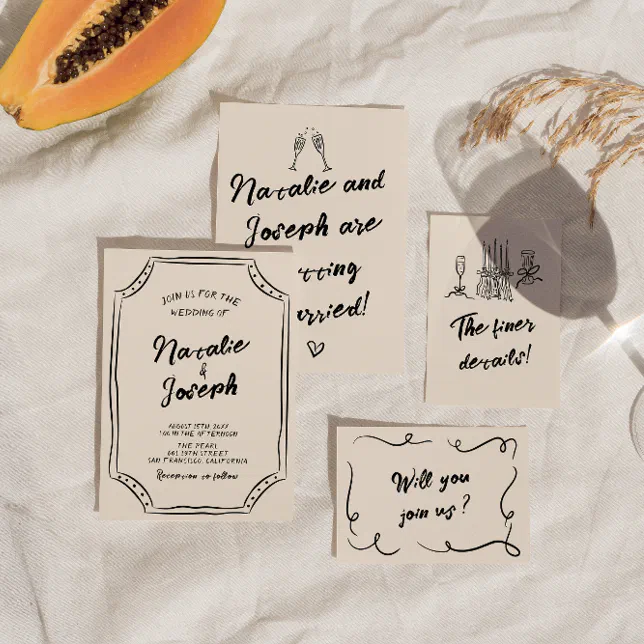 Natalie and
Joseph are
tting
arried!
JOIN US FOR THE
WEDDING OF
Natalie
&
Joseph
AUGUST 15TH, 20XX
1:00 IN THE AFTERNOON
THE PEARL
661 19TH STREET
SAN FRANCISCO, CALIFORNIA
Reception to follow
The finer
details!
Will you
join us?